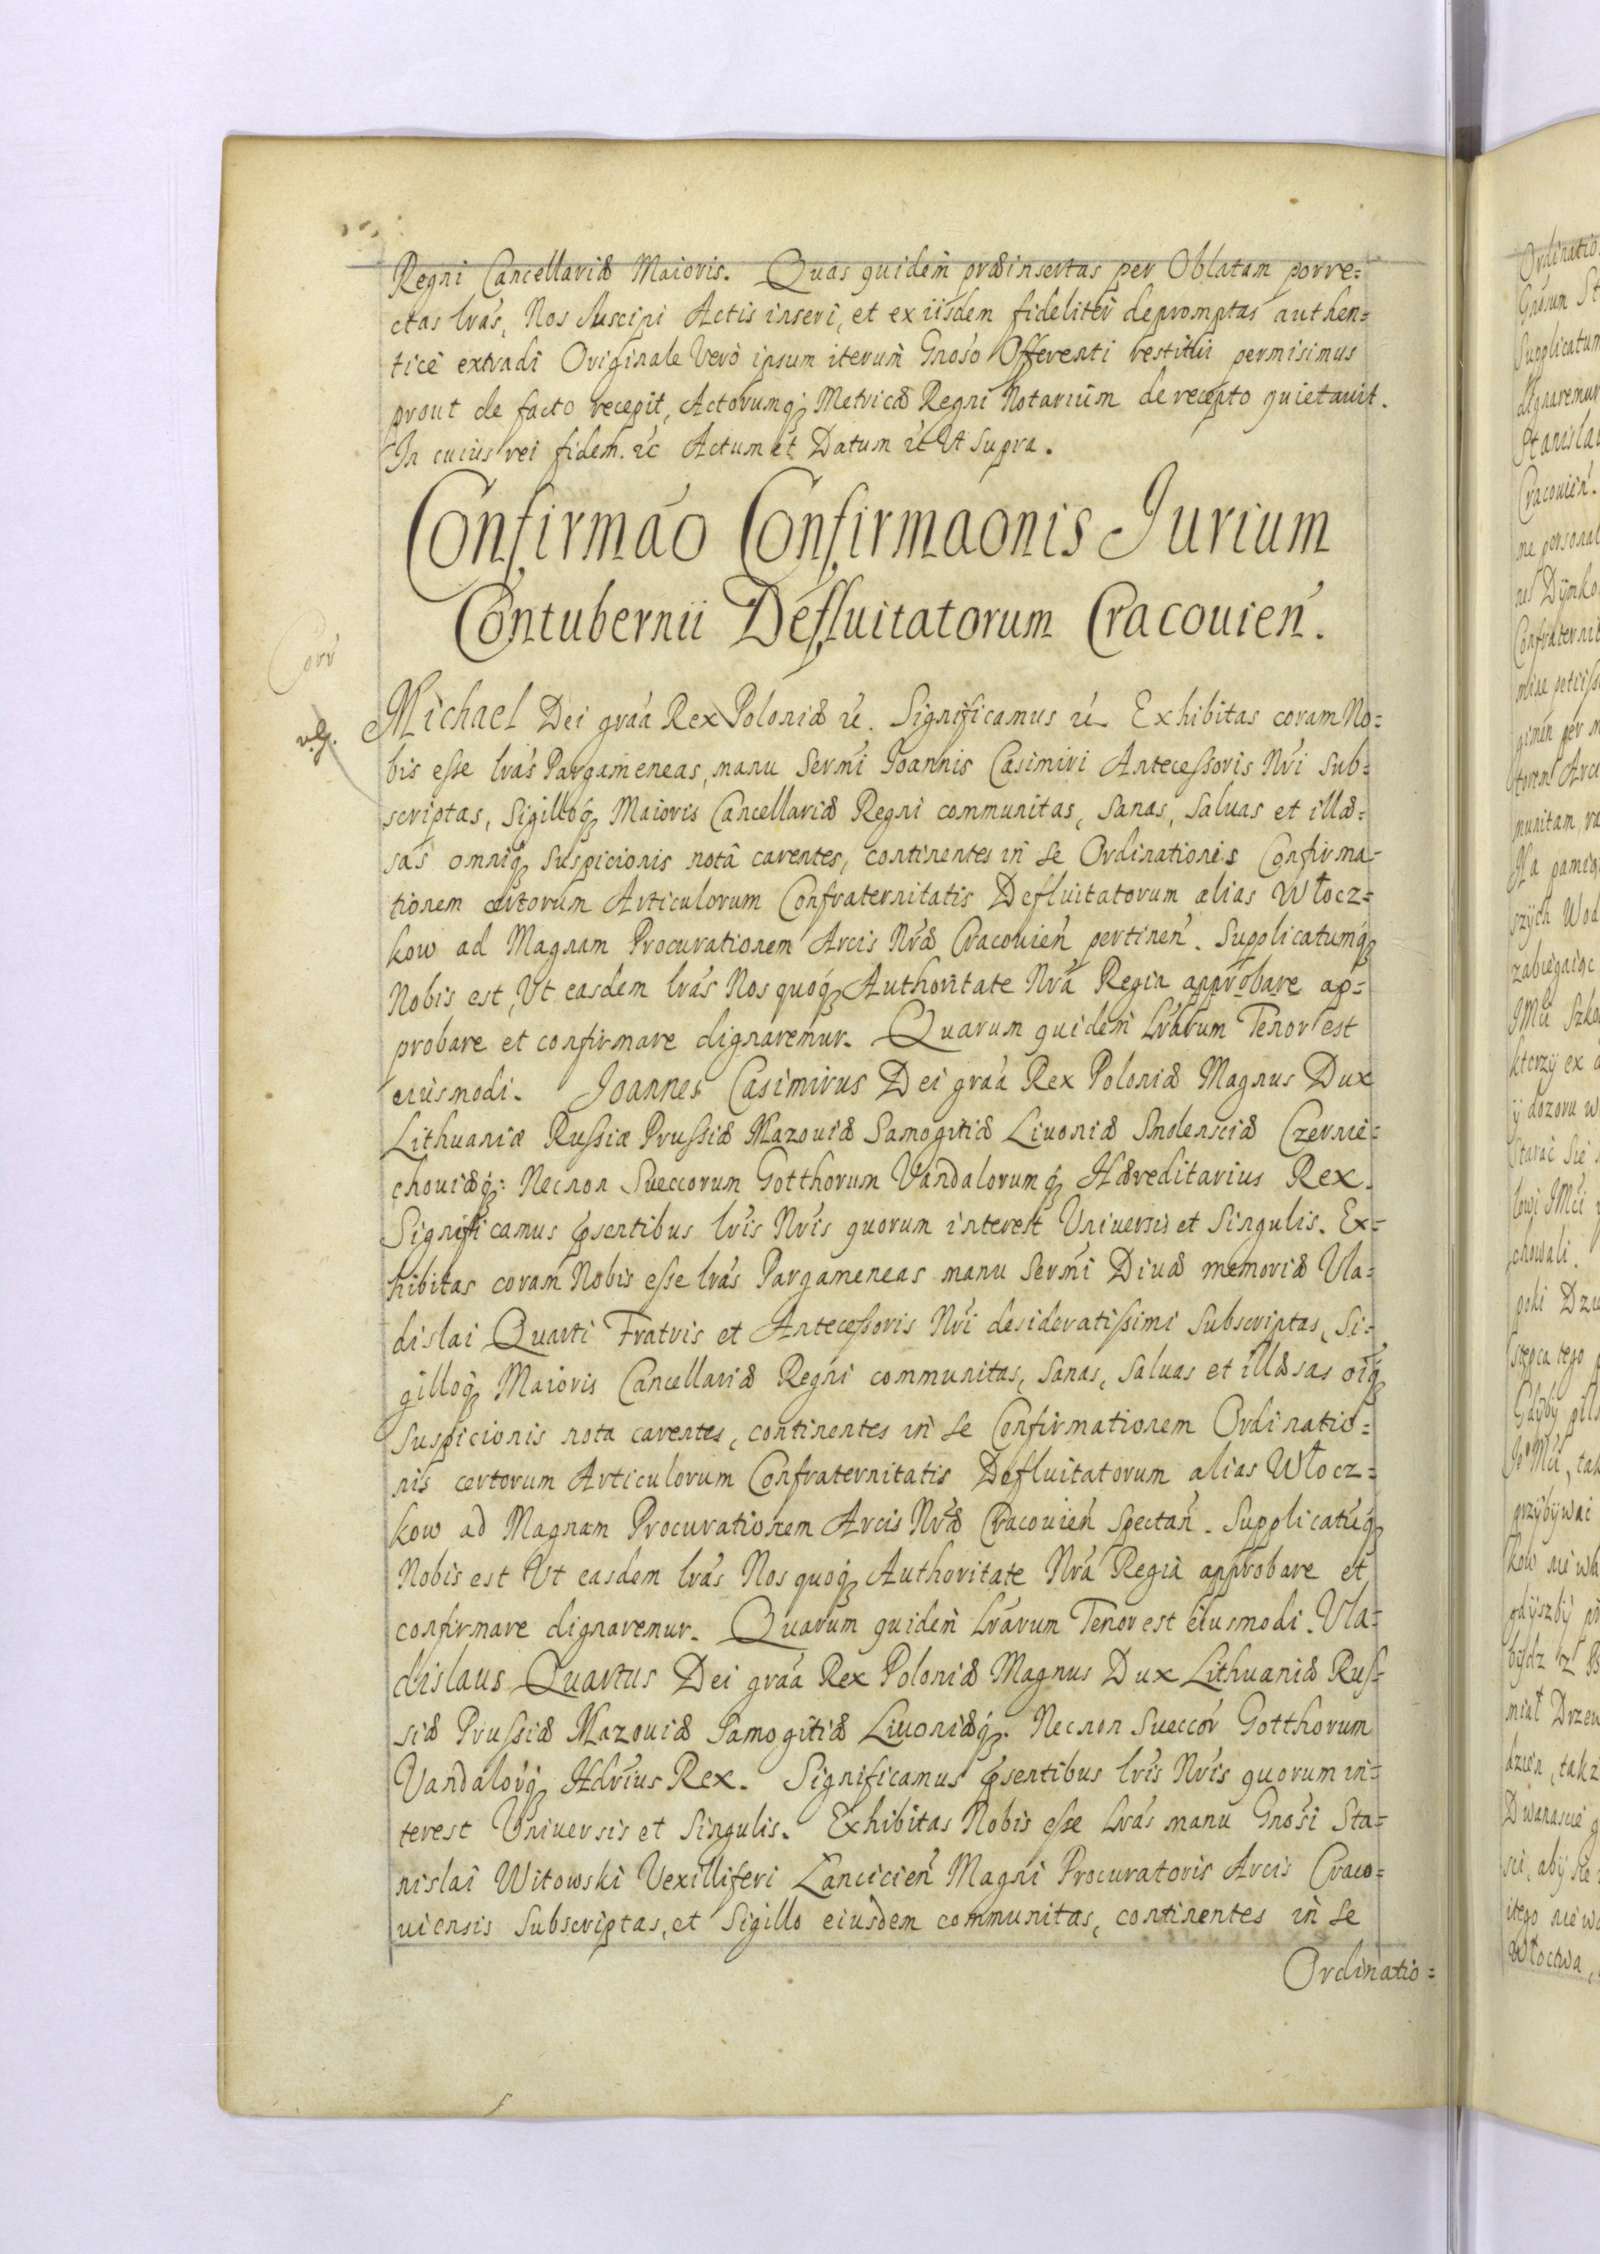 Regni Cancellariæ Maioris. Quas quidem præinsertas per Oblatam porre=
ctas lrás, Nos Suscipi Actis inseri, et ex iisdem fideliter depromptas authen=
tice extradi Originale Vero ipsum iterum Gnoso Offerenti restitui permisimus
prout de facto recepit, Actorumq; Metricæ Regni Notarium de recepto quietavit.
In cuius rei fidem. &c Actum et Datum &c Ut Supra.
Confirmaó Confirmaonis Jurium
Contubernii Defluitatorum Cracouień.
Corr
Michael Dei graá Rex Poloniæ &c. Significamus &c Exhibitas coram No=
bis esse lrás Pargameneas, manu Sermi Joannis Casimiri Antecessoris Nri Sub=
scriptas, Sigilloq; Maioris Cancellariæ Regni communitas, Sanas, Saluas et illæ=
sas omniq; Suspicionis notâ carentes, continentes in Se Ordinationis Confirma=
tionem certorum Articulorum Confraternitatis Defluitatorum alias Włocz=
kow ad Magnam Procurationem Arcis Nræ Cracouień pertineń. Supplicatumq;
Nobis est, Ut easdem lrás Nos quoq; Authoritate Nrá Regia approbare ap=
probare et confirmare dignaremur. Quarum quidem Lrárum Tenor est
eiusmodi. Joannes Casimirus Dei graá Rex Poloniæ Magnus Dux
Lithuaniæ Russiæ Prussiæ Mazouiæ Samogitiæ Liuoniæ Smolensciæ Czernie=
chouiæq;: Necnon Sueccorum Gotthorum Vandalorumq; Hæreditarius Rex.
Significamus pśentibus lris Nris quorum interest Uniuersis et Singulis. Ex=
hibitas coram Nobis esse lrás Pargameneas manu Sermi Diuæ memoriæ Vla=
dislai Quarti Fratris et Antecessoris Nri desideratissimi Subscriptas, Si=
gilloq; Maioris Cancellariæ Regni communitas, Sanas, Saluas et illæsas oiq;
Suspicionis nota carentes, continentes in Se Confirmationem Ordinatio=
nis certorum Articulorum Confraternitatis Defluitatorum alias Włocz=
kow ad Magnam Procurationem Arcis Nræ Cracouień Spectań. Supplicatúq;
Nobis est Ut easdem lrás Nos quoq; Authoritate Nrá Regiâ approbare et
confirmare dignaremur. Quarum quidem Lrárum Tenor est eiusmodi. Vla=
dislaus Quartus Dei graá Rex Poloniæ Magnus Dux Lithuaniæ Rus=
siæ Prussiæ Mazouiæ Samogitiæ Liuoniæq;. Necnon Sueccór Gotthorum
Vandalórq; Hdrius Rex. Significamus pśentibus lris Nris quorum in=
terest Uniuersis et Singulis. Exhibitas Nobis esse Lrás manu Gnosi Sta=
nislai Witowski Vexilliferi Lancicień Magni Procuratoris Arcis Craco=
uiensis Subscriptas, et Sigillo eiusdem communitas, continentes in Se
Ordinatio=